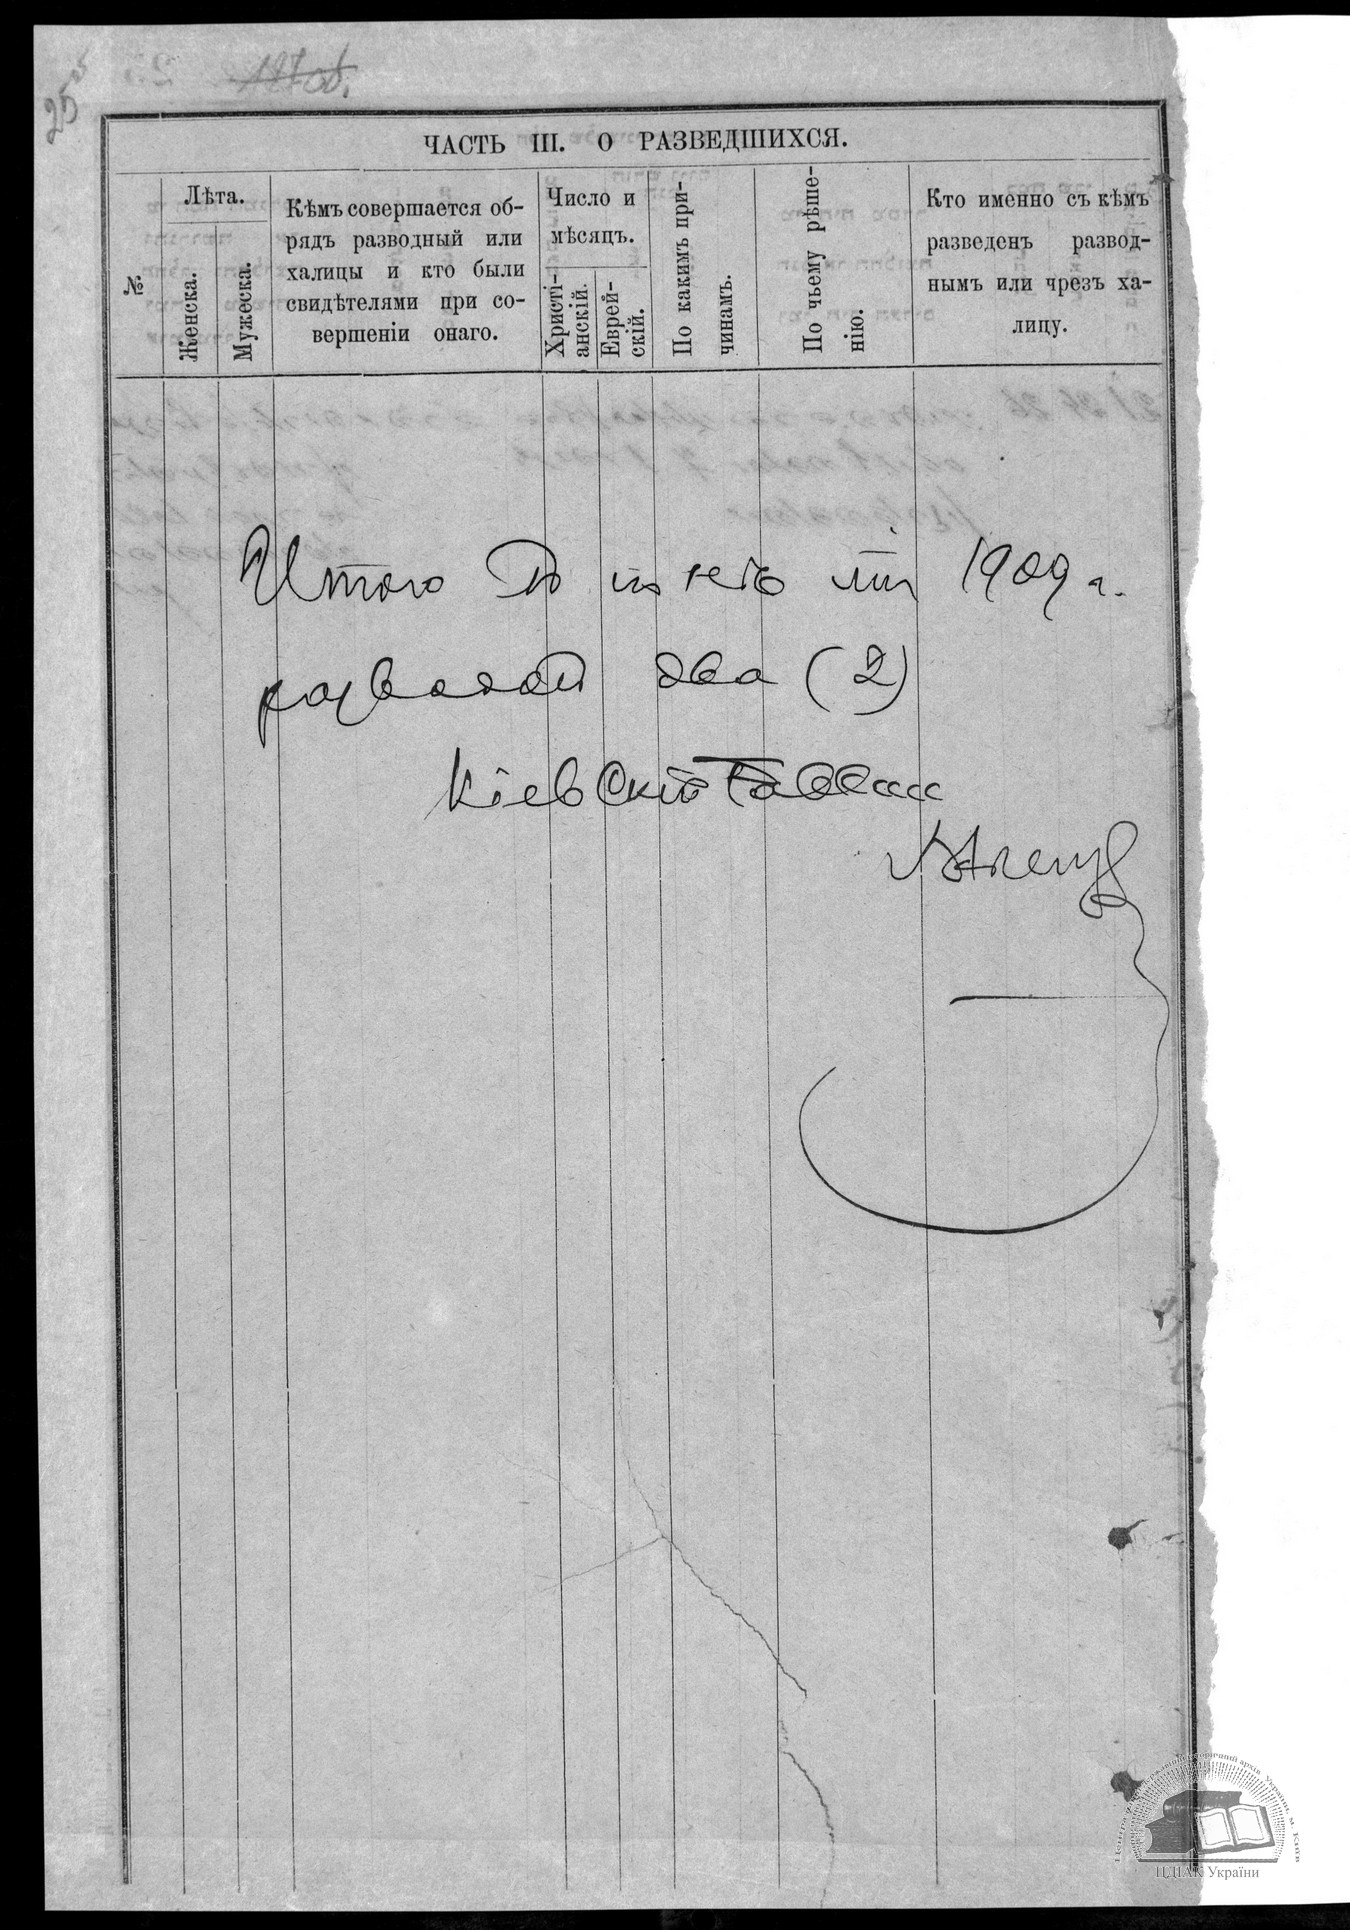 25
ЧАСТЬ III. О РАЗВЕДШИХСЯ.
№
Лѣта.
Женска.
Мужеска.
Кѣмъ совершается об-
рядъ разводный или
халицы и кто были
свидѣтелями при со-
вершеніи онаго.
Число и
мѣсяцъ.
Христі-
анскій.
Еврей-
скій.
По какимъ при-
чинамъ.
По чьему рѣше-
нію.
Кто именно съ кѣмъ
разведенъ развод-
нымъ или чрезъ ха-
лицу.
Итого въ 1909 г.
разводовъ два (2)
Кіевскій Раввин
ЦДІАК України